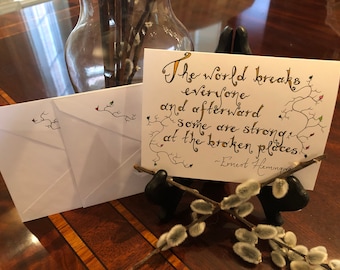 The world breaks
everyone
and afterward
some are strong
at the broken places
~Ernest